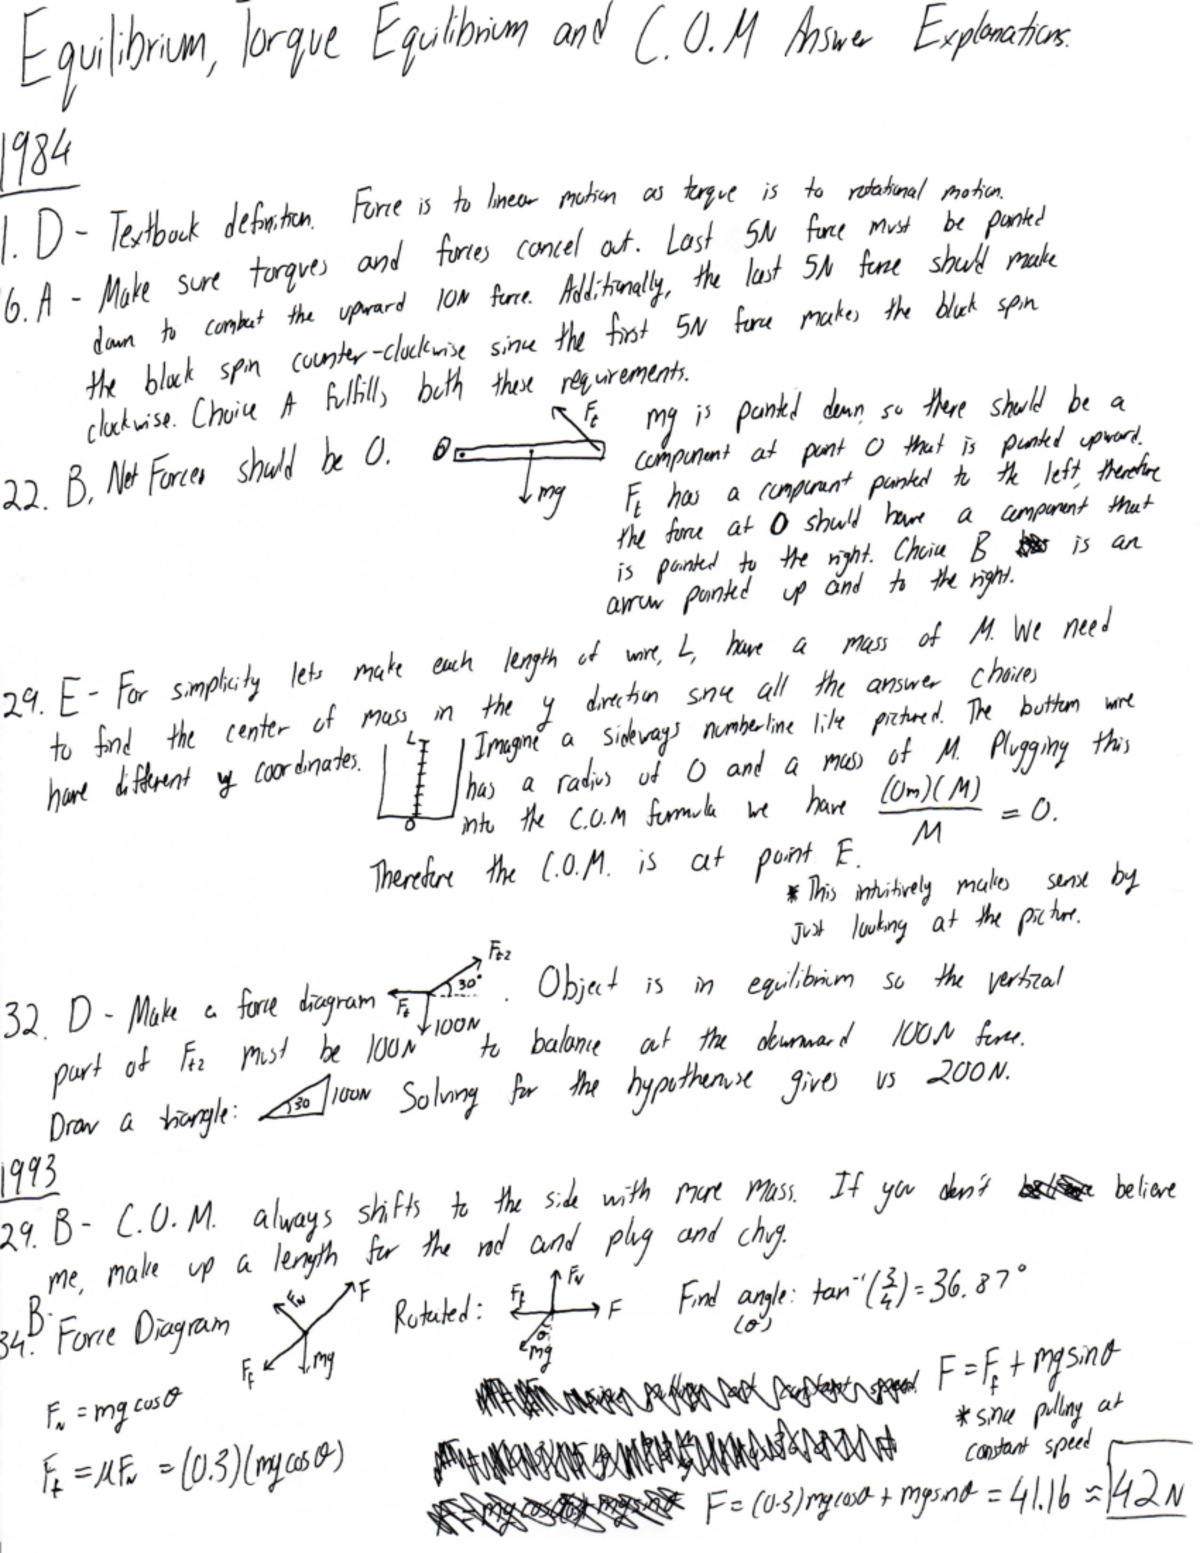 Equilibrium, Torque Equilibrium and C.O.M Answer Explanations.
1984
1. D - Textbook definition. Force is to linear motion as torque is to rotational motion.
6. A - Make sure torques and forces cancel out. Last 5N force must be pointed
down to combat the upward 10N force. Additionally, the last 5N force should make
the block spin counter-clockwise since the first 5N force makes the block spin
clockwise. Choice A fulfills both these requirements.
22. B. Net Forces should be 0.
O
Ft
mg
mg is pointed down, so there should be a
component at point O that is pointed upward.
Ft has a component pointed to the left, therefore
the force at O should have a component that
is pointed to the right. Choice B is an
arrow pointed up and to the right.
29. E - For simplicity lets make each length of wire, L, have a mass of M. We need
to find the center of mass in the y direction since all the answer choices
have different y coordinates.
L
0
Imagine a sideways numberline like pictured. The bottom wire
has a radius of 0 and a mass of M. Plugging this
into the C.O.M formula we have (0m)(M) / M = 0.
Therefore the C.O.M. is at point E.
* This intuitively makes sense by
just looking at the picture.
32. D - Make a force diagram
Ft2
30°
Ft
100N
. Object is in equilibrium so the vertical
part of Ft2 must be 100N to balance out the downward 100N force.
Draw a triangle: 30 100N Solving for the hypothenuse gives us 200N.
1993
29. B - C.O.M. always shifts to the side with more mass. If you don't believe
me, make up a length for the rod and plug and chug.
34. B. Force Diagram
FN
F
Ff
mg
Rotated:
FN
Ff
F
θ
mg
Find angle: tan⁻¹(3/4) = 36.87°
(θ)
FN = mg cosθ
Ff = μFN = (0.3)(mg cosθ)
F = Ff + mg sinθ
* since pulling at
constant speed
F = (0.3)mg cosθ + mg sinθ = 41.16 ≈ 42N